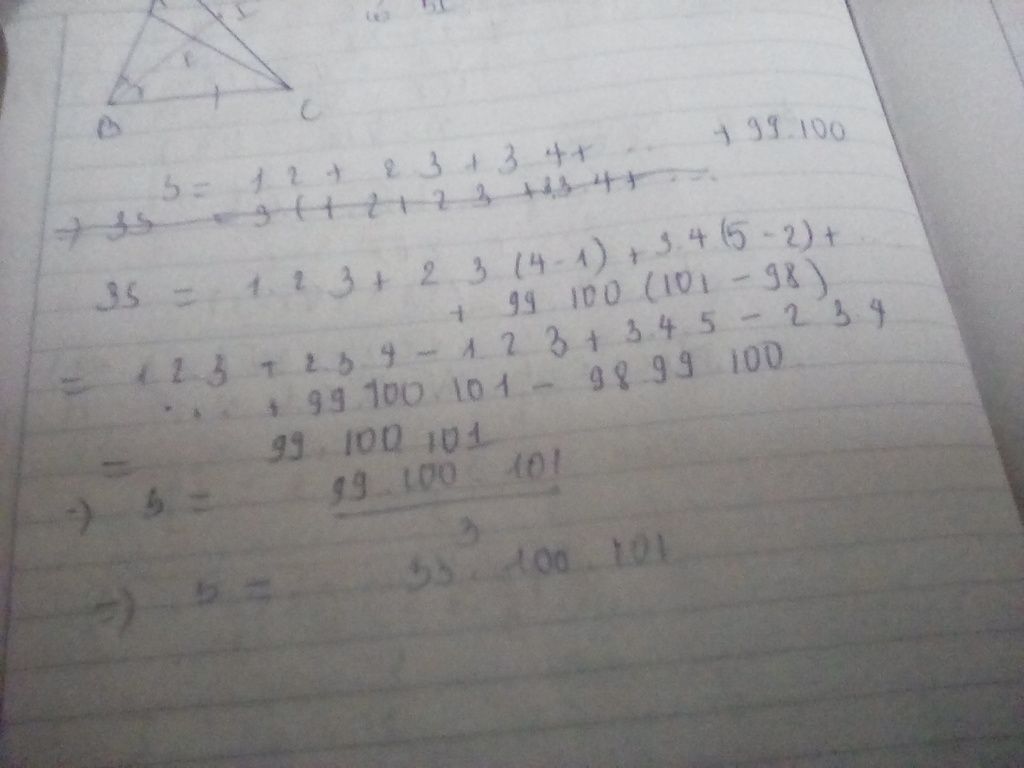 B
C
S = 1.2 + 2.3 + 3.4 + ... + 99.100
=> 3S = 3(1.2 + 2.3 + 3.4 + ...
3S = 1.2.3 + 2.3(4-1) + 3.4(5-2) +
+ 99.100(101-98)
= 1.2.3 + 2.3.4 - 1.2.3 + 3.4.5 - 2.3.4
... + 99.100.101 - 98.99.100
= 99.100.101
=> S = 99.100.101
3
=> S = 33.100.101